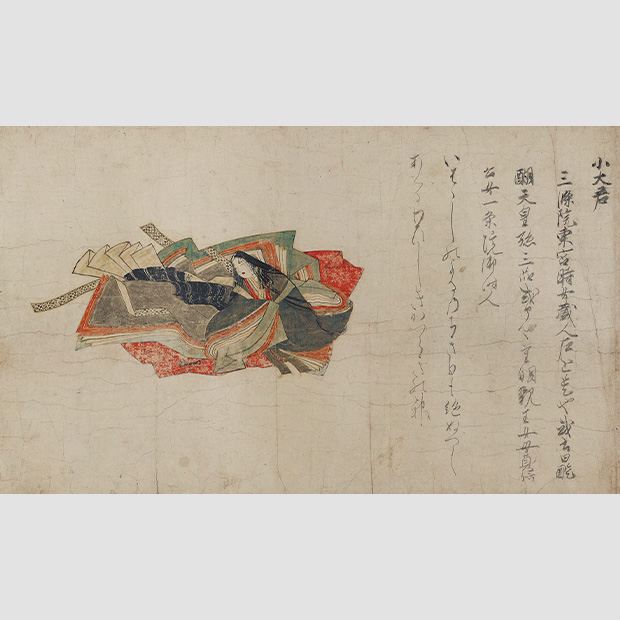 小大君
三條院東宮時女蔵人左近と云や或曰醍
醐天皇孫三品式部卿重明親王女母貞信
公女一条院御時人
いはゝしのよるのちきりも絶ぬへし
あくるわひしきかつらきの神